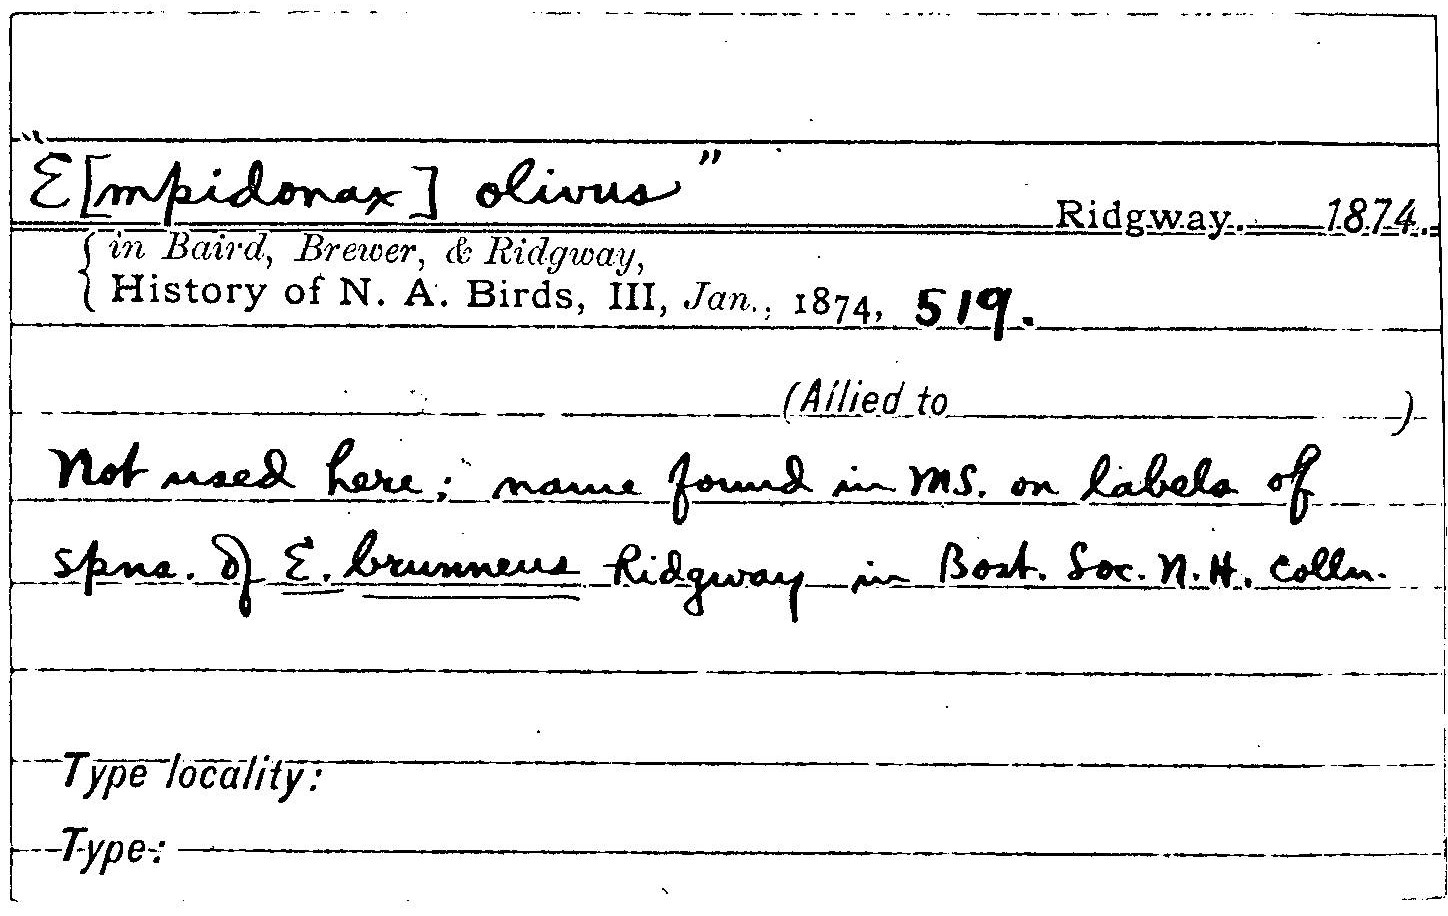 "E[mpidonax] olivus"
Ridgway. 1874.
in Baird, Brewer, & Ridgway,
History of N. A. Birds, III, Jan., 1874, 519.
(Allied to )
Not used here; name found in MS. on labels of
spns. of E. brunneus Ridgway in Bost. Soc. N.H. Colln.
Type locality:
Type: